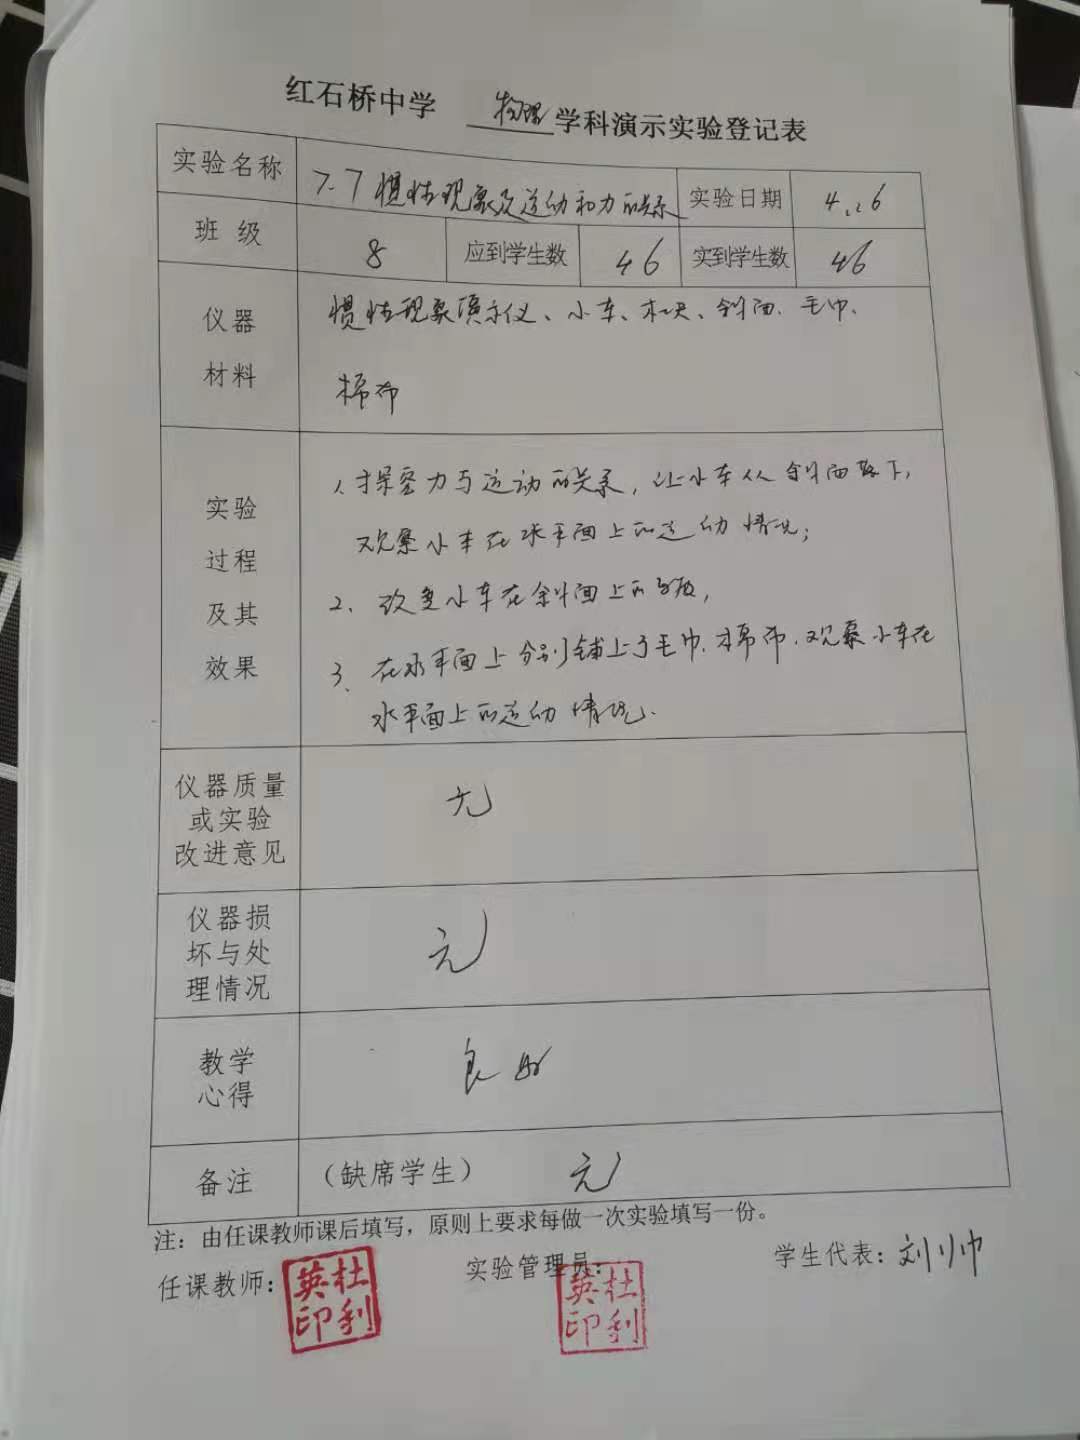 红石桥中学 物理 学科演示实验登记表
实验名称 7-7 惯性现象及运动和力的关系 实验日期 4.26
班 级 8 应到学生数 46 实到学生数 46
仪器 惯性现象演示仪、小车、木块、斜面、毛巾、
材料 棉布
实验
过程
及其
效果
1、探究力与运动的关系，让小车从斜面落下，
观察小车在水平面上的运动情况；
2、改变小车在斜面上的高度，
3、在水平面上分别铺上了毛巾、棉布，观察小车在
水平面上的运动情况.
仪器质量
或实验
改进意见
无
仪器损
坏与处
理情况
无
教学
心得
良好
备注 （缺席学生） 无
注：由任课教师课后填写，原则上要求每做一次实验填写一份。
任课教师： 实验管理员： 学生代表：刘帅
杜利英印
杜利英印